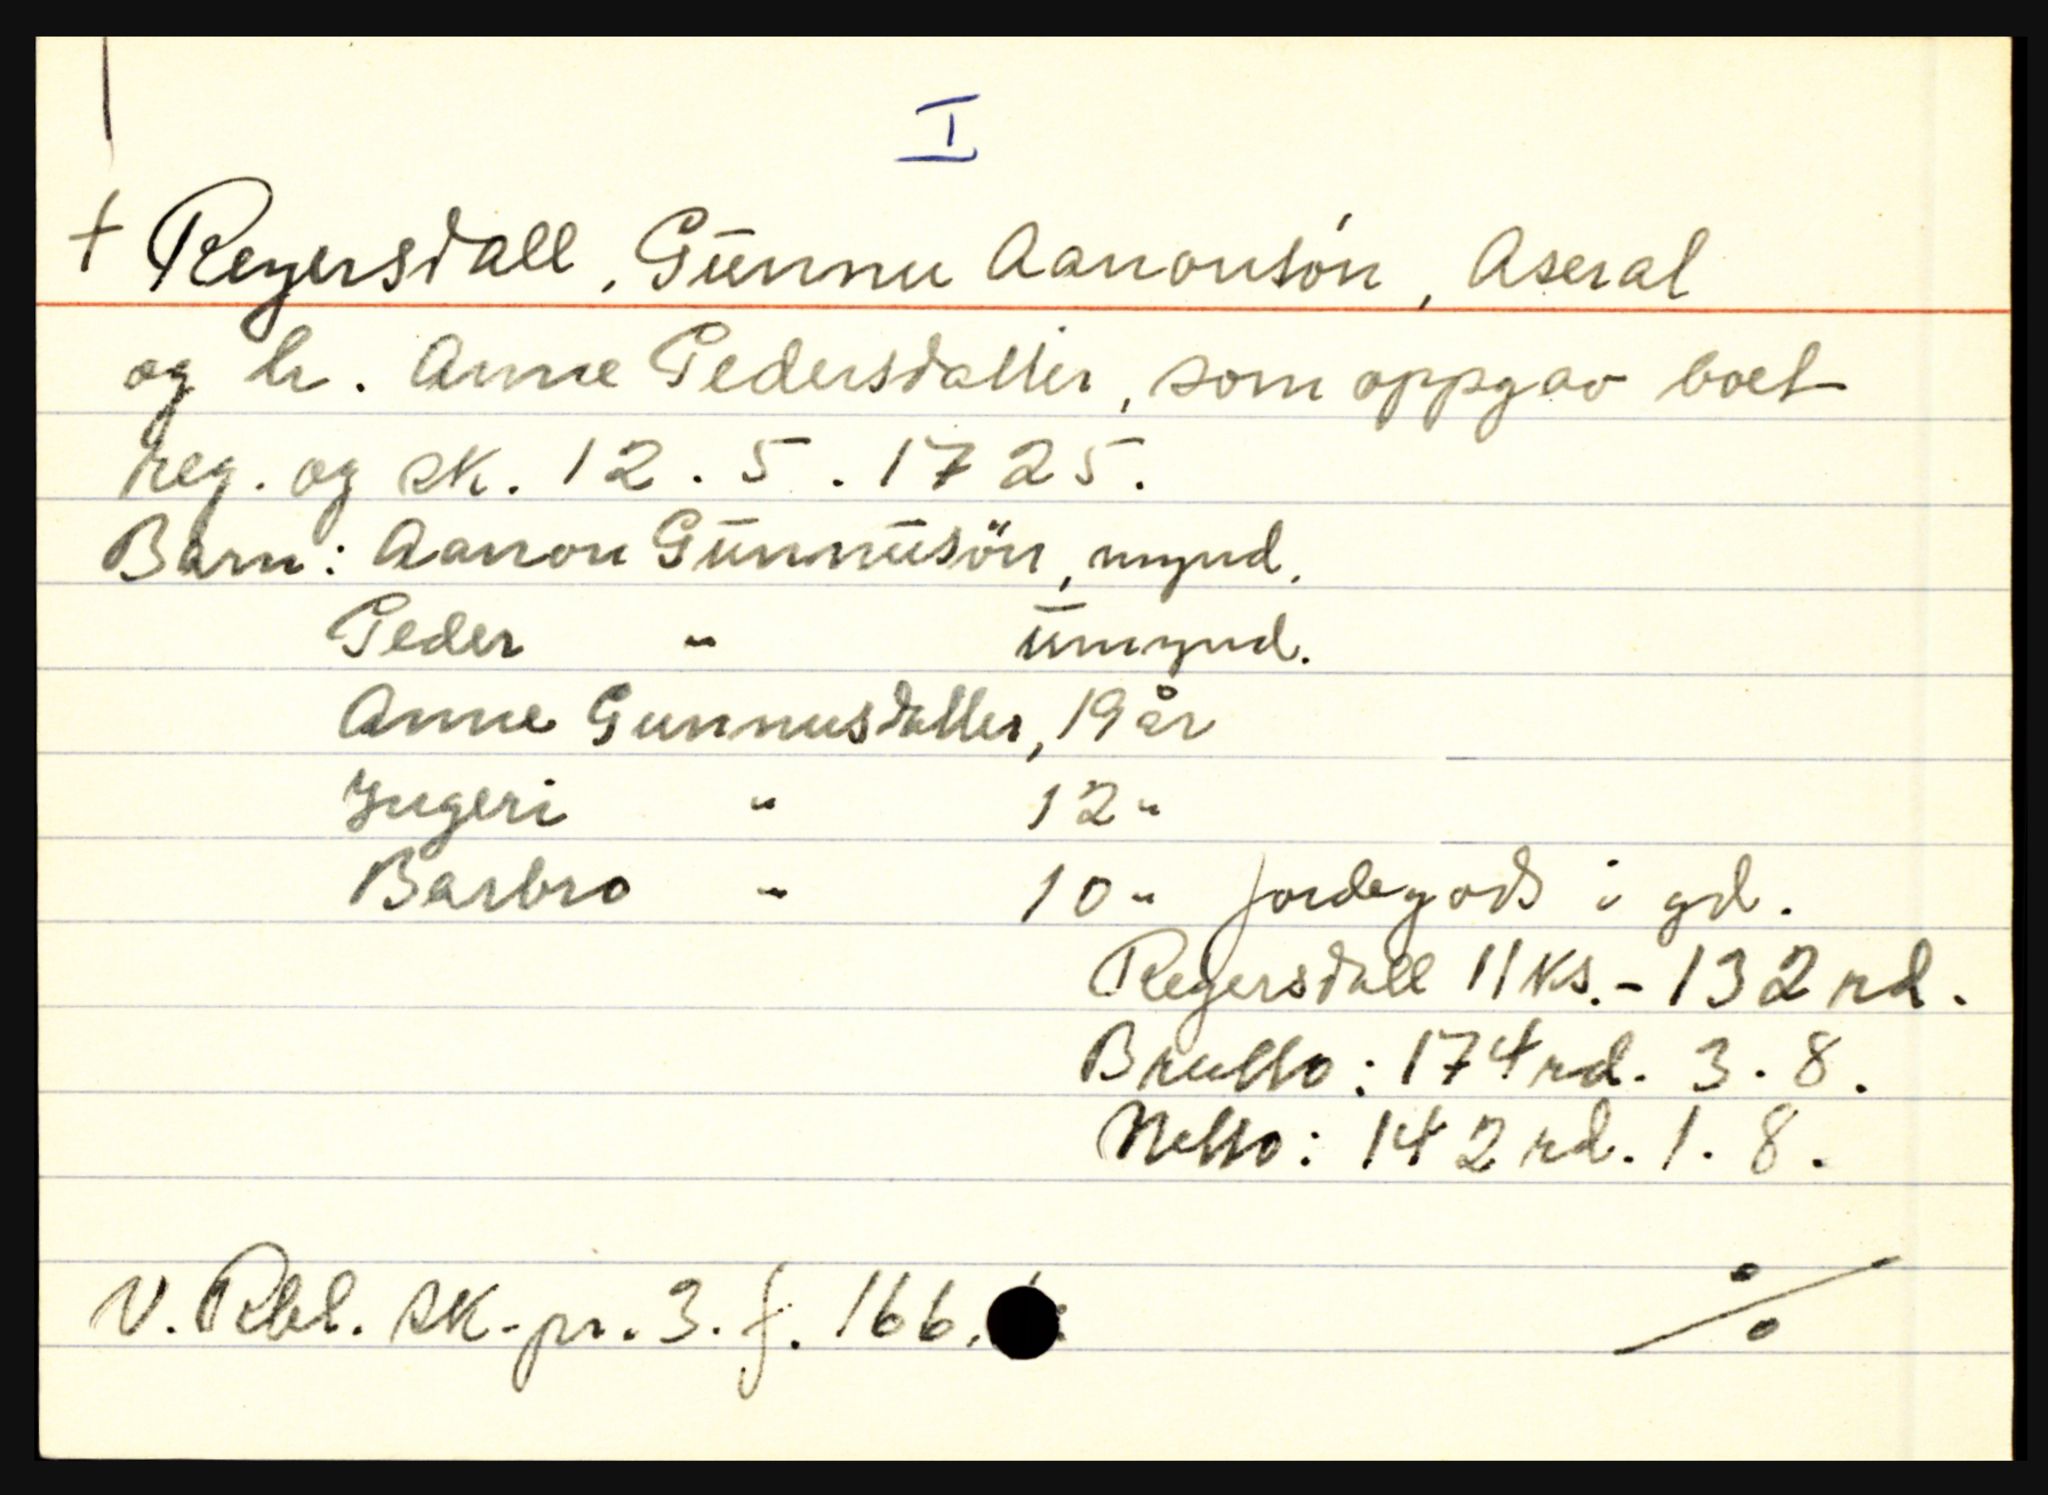 I
+ Reyersdall, Gūnnu Aanonsón, Aseral
og h. Anne Pedersdatter, som oppgav boet
reg. og sk. 12.5.1725.
Barn: Aanon Gūnnūsön, mynd.
Peder " ūmynd.
Anne Gunnusdatter, 19 år
Ingeri " 12 "
Barbro " 10 " Jordegods i gd.
Reyersdall 11 ks. - 132 rd.
Brutto: 174 rd. 3. 8.
Netto: 142 rd. 1. 8.
V. Rbl. sk.pr. 3. f. 166.